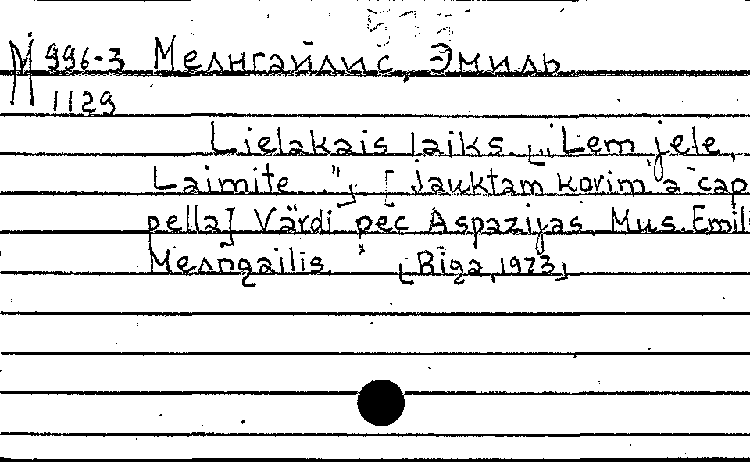 М 996-3 Мелнгайлис, Эмиль
1129
Lielakais laiks. [„Lem jele,
Laimite..."] [Jauktam korim a cap
pella] Vārdi pēc Aspazijas. Mus. Emil
Мелngailis. [Rīga, 1923]